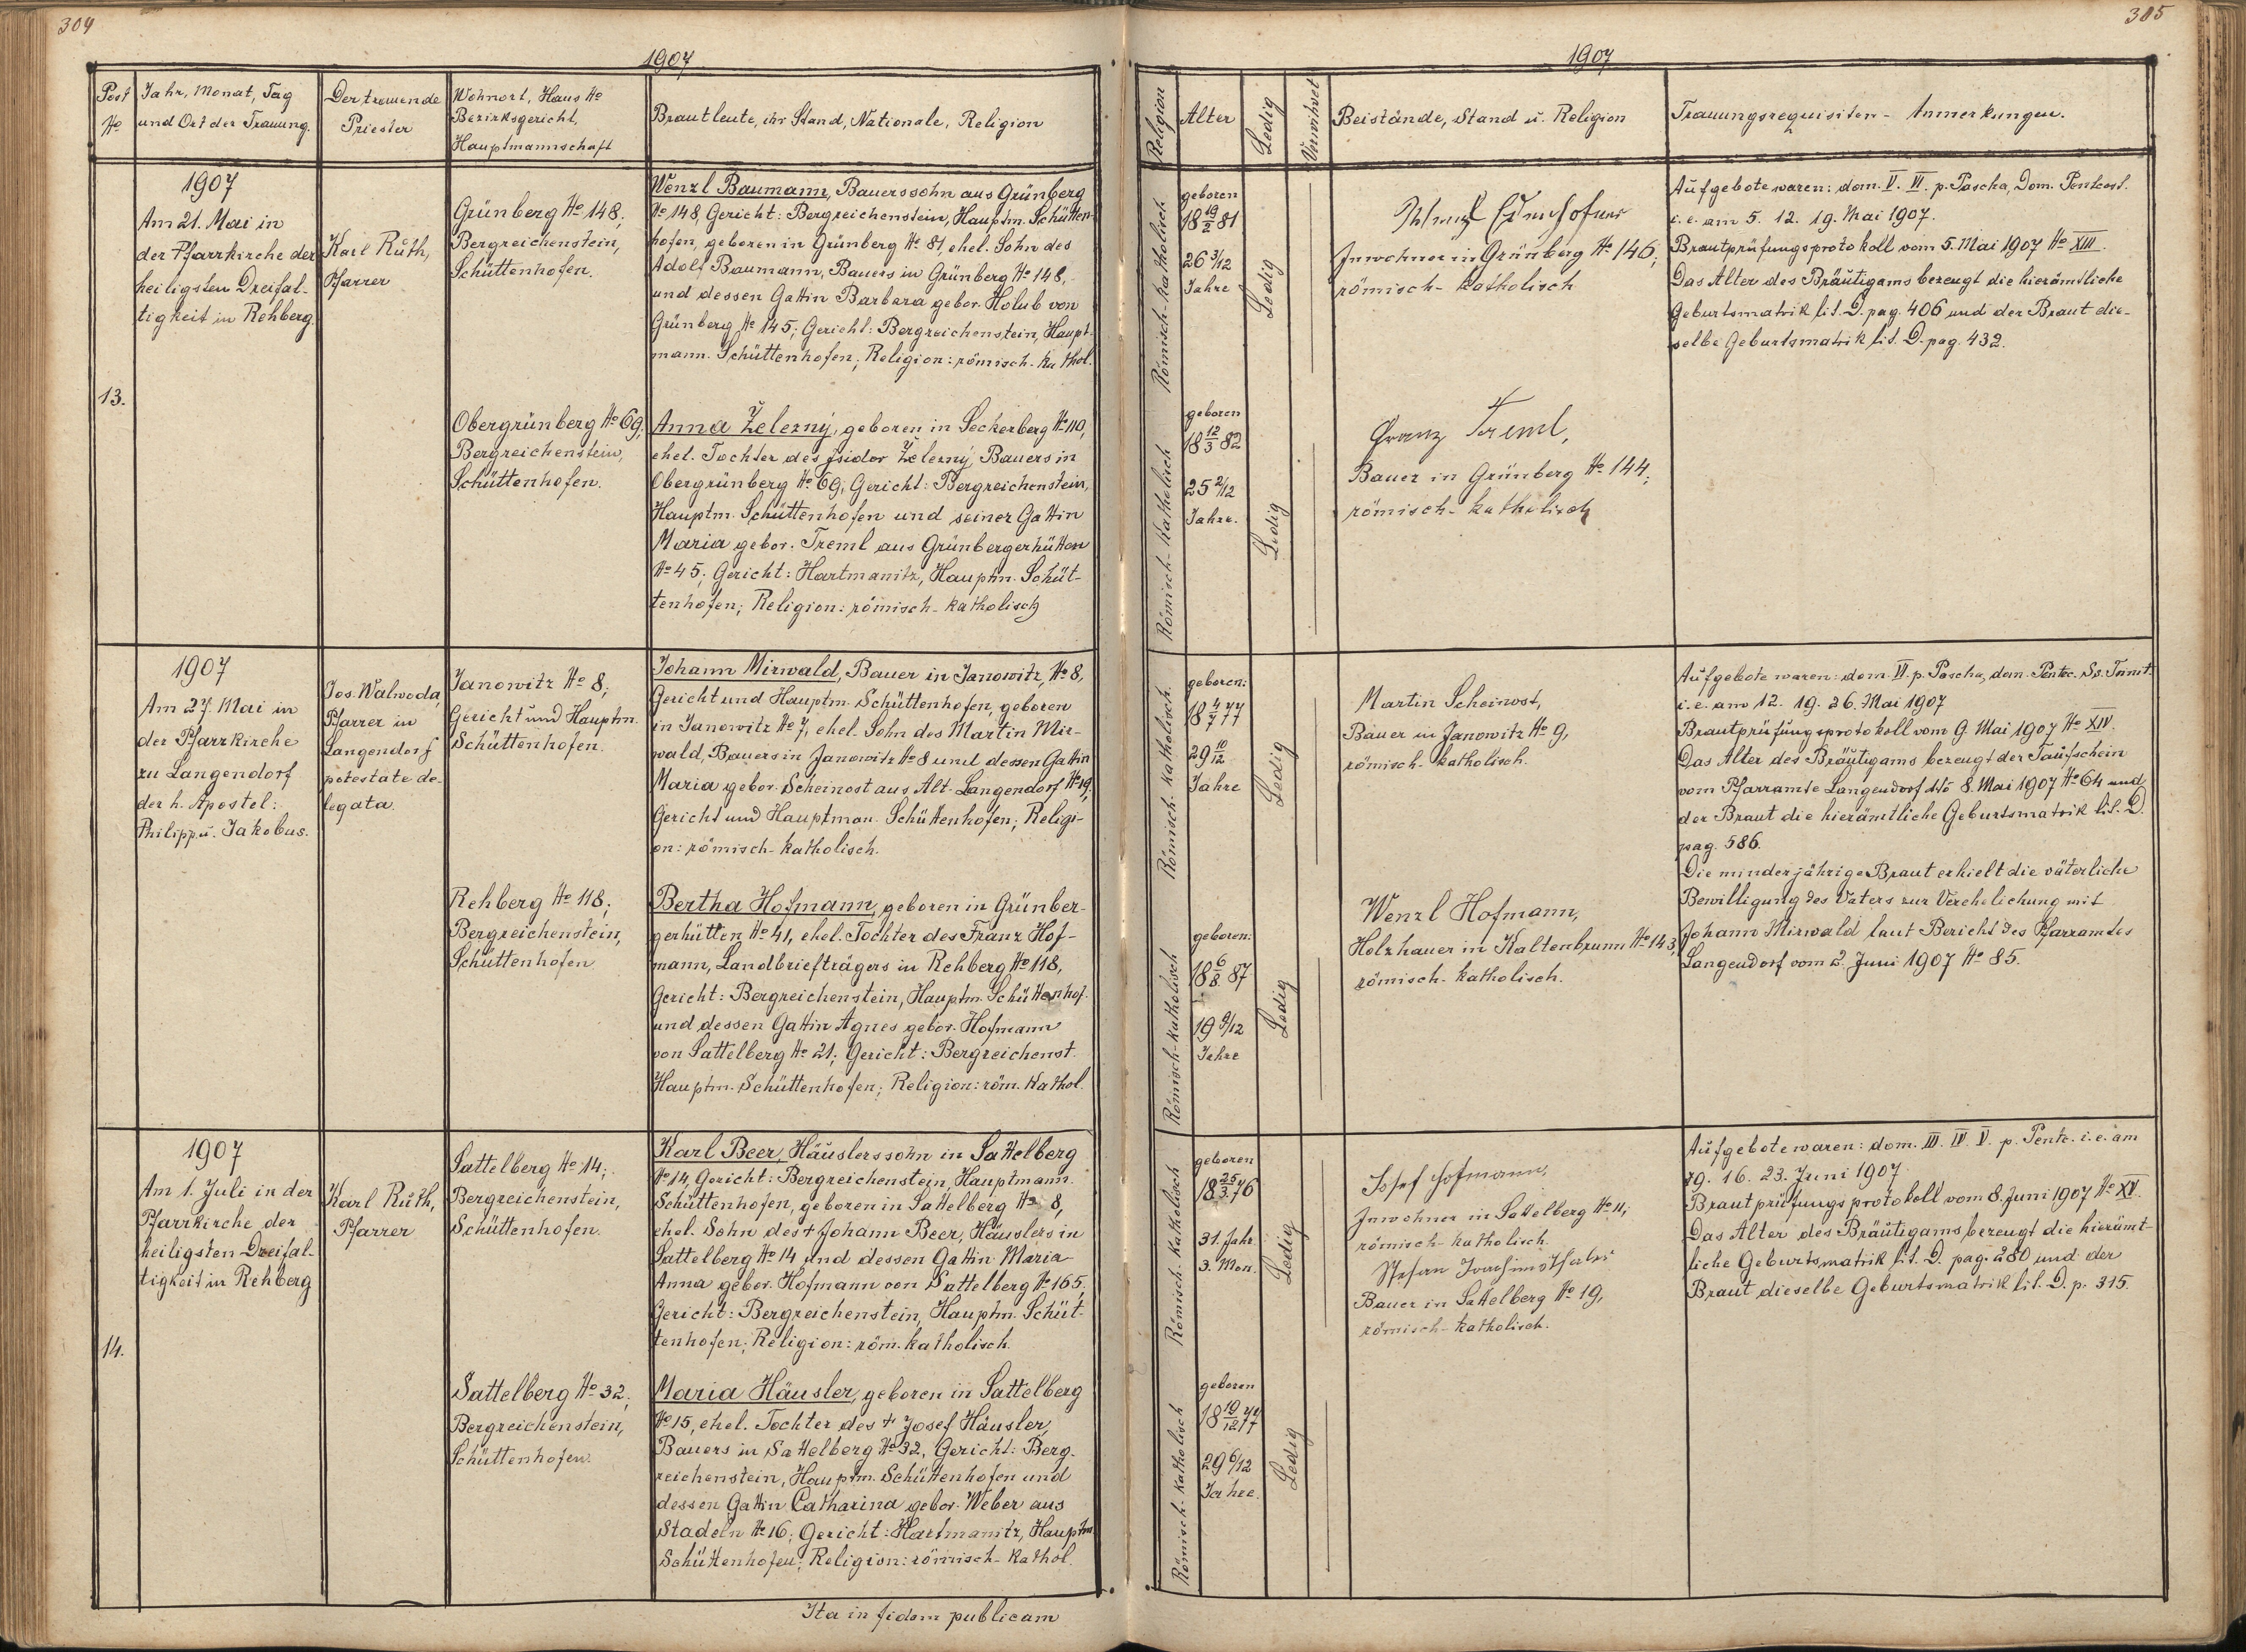 304
1907
Post No
Jahr, Monat, Tag
und Ort der Trauung.
Der trauende
Priester
Wohnort, Haus No
Bezirksgericht,
Hauptmannschaft
Brautleute, ihr Stand, Nationale, Religion
13.
1907
Am 21. Mai in
der Pfarrkirche der
heiligsten Dreifal-
tigkeit in Rehberg.
Karl Ruth,
Pfarrer
Grünberg No 148,
Bergreichenstein,
Schüttenhofen.
Wenzl Baumann, Bauerssohn aus Grünberg
No 148, Gericht: Bergreichenstein, Hauptm. Schütten-
hofen, geboren in Grünberg No 81, ehel. Sohn des
Adolf Baumann, Bauers in Grünberg No 148,
und dessen Gattin Barbara gebor. Holub von
Grünberg No 145; Gericht: Bergreichenstein, Haupt-
mann. Schüttenhofen; Religion: römisch-kathol.
Obergrünberg No 69,
Bergreichenstein,
Schüttenhofen.
Anna Železný, geboren in Seckerberg No 110,
ehel. Tochter des Isidor Železný, Bauers in
Obergrünberg No 69; Gericht: Bergreichenstein,
Hauptm. Schüttenhofen und seiner Gattin
Maria gebor. Treml aus Grünbergerhütten
No 45; Gericht: Hartmanitz, Hauptm. Schüt-
tenhofen; Religion: römisch-katholisch
1907
Am 27. Mai in
der Pfarrkirche
zu Langendorf
der h. Apostel:
Philipp u. Jakobus.
Jos. Walwoda,
Pfarrer in
Langendorf
potestate de-
legata.
Janowitz No 8;
Gericht und Hauptm.
Schüttenhofen.
Johann Mirwald, Bauer in Janowitz, No 8,
Gericht und Hauptm. Schüttenhofen, geboren
in Janowitz No 7, ehel. Sohn des Martin Mir-
wald, Bauers in Janowitz No 8 und dessen Gattin
Maria gebor. Scheinost aus Alt. Langendorf No 19,
Gericht und Hauptman. Schüttenhofen; Religi-
on: römisch-katholisch.
Rehberg No 118;
Bergreichenstein,
Schüttenhofen
Bertha Hofmann, geboren in Grünber-
gerhütten No 41, ehel. Tochter des Franz Hof-
mann, Landbriefträgers in Rehberg No 118,
Gericht: Bergreichenstein, Hauptm. Schüttenhof.
und dessen Gattin Agnes gebor. Hofmann
von Sattelberg No 21; Gericht: Bergreichenst.
Hauptm. Schüttenhofen; Religion: röm. kathol.
14.
1907
Am 1. Juli in der
Pfarrkirche der
heiligsten Dreifal-
tigkeit in Rehberg
Karl Ruth,
Pfarrer
Sattelberg No 14;
Bergreichenstein,
Schüttenhofen.
Karl Beer, Häuslerssohn in Sattelberg
No 14, Gericht: Bergreichenstein, Hauptmann.
Schüttenhofen, geboren in Sattelberg No 8,
ehel. Sohn des + Johann Beer, Häuslers in
Sattelberg No 14 und dessen Gattin Maria
Anna gebor. Hofmann von Sattelberg No 165,
Gericht: Bergreichenstein, Hauptm. Schüt-
tenhofen; Religion: röm. katholisch.
Sattelberg No 32,
Bergreichenstein,
Schüttenhofen.
Maria Häusler, geboren in Sattelberg
No 15, ehel. Tochter des + Josef Häusler,
Bauers in Sattelberg No 32, Gericht: Berg-
reichenstein, Hauptm. Schüttenhofen und
dessen Gattin Catharina gebor. Weber aus
Stadeln No 16; Gericht: Hartmanitz, Hauptm
Schüttenhofen; Religion: römisch-kathol.
Ita in fidem publicam
305
1907
Religion
Alter
Ledig
Verwitwet
Beistände, Stand u. Religion
Trauungsrequisiten - Anmerkungen.
Römisch-katholisch
geboren
18 19/2 81
26 3/12
Jahre
Ledig
Inwohner in Grünberg No 146;
römisch-katholisch
Aufgebote waren: dom. V. VI. p. Pascha, Dom. Pentecost.
i. e. am 5. 12. 19. Mai 1907.
Brautprüfungsprotokoll vom 5. Mai 1907 No XIII.
Das Alter des Bräutigams bezeugt die hierämtliche
Geburtsmatrik lit. D. pag. 406 und der Braut die-
selbe Geburtsmatrik lit. D. pag. 432.
Römisch-katholisch
geboren
18 12/3 82
25 2/12
Jahre.
Ledig
Franz Treml,
Bauer in Grünberg No 144;
römisch-katholisch
Römisch-katholisch.
geboren:
18 4/7 77
29 10/12
Jahre
Ledig
Martin Scheinost,
Bauer in Janowitz No 9,
römisch-katholisch.
Aufgebote waren: dom. VI. p. Pascha, dom. Pentec. Ss. Trinit.
i. e. am 12. 19. 26. Mai 1907
Brautprüfungsprotokoll vom 9. Mai 1907 No XIV.
Das Alter des Bräutigams bezeugt der Taufschein
vom Pfarramte Langendorf dto 8. Mai 1907 No 64 und
der Braut die hierämtliche Geburtsmatrik lit. D.
pag. 586.
Die minderjährige Braut erhielt die väterliche
Bewilligung des Vaters zur Verehelichung mit
Johann Mirwald laut Bericht des Pfarramtes
Langendorf vom 2. Juni 1907 No 85.
Römisch-katholisch
geboren:
18 6/8 87
19 9/12
Jahre
Ledig
Wenzl Hofmann,
Holzhauer in Kaltenbrunn No 143,
römisch-katholisch.
Römisch-katholisch
geboren
18 25/3 76
31. Jahr
3. Mon.
Ledig
Josef Hofmann,
Inwohner in Sattelberg No 11;
römisch-katholisch.
Stefan Joachimsthaler
Bauer in Sattelberg No 19,
römisch-katholisch.
Aufgebote waren: dom. III. IV. V. p. Pentc. i. e. am
9. 16. 23. Juni 1907.
Brautprüfungsprotokoll vom 8. Juni 1907 No XV.
Das Alter des Bräutigams bezeugt die hierämt-
liche Geburtsmatrik lit. D. pag. 280 und der
Braut dieselbe Geburtsmatrik lit. D. p. 315.
Römisch-katholisch
geboren
18 19/12 77
29 6/12
Jahre.
Ledig